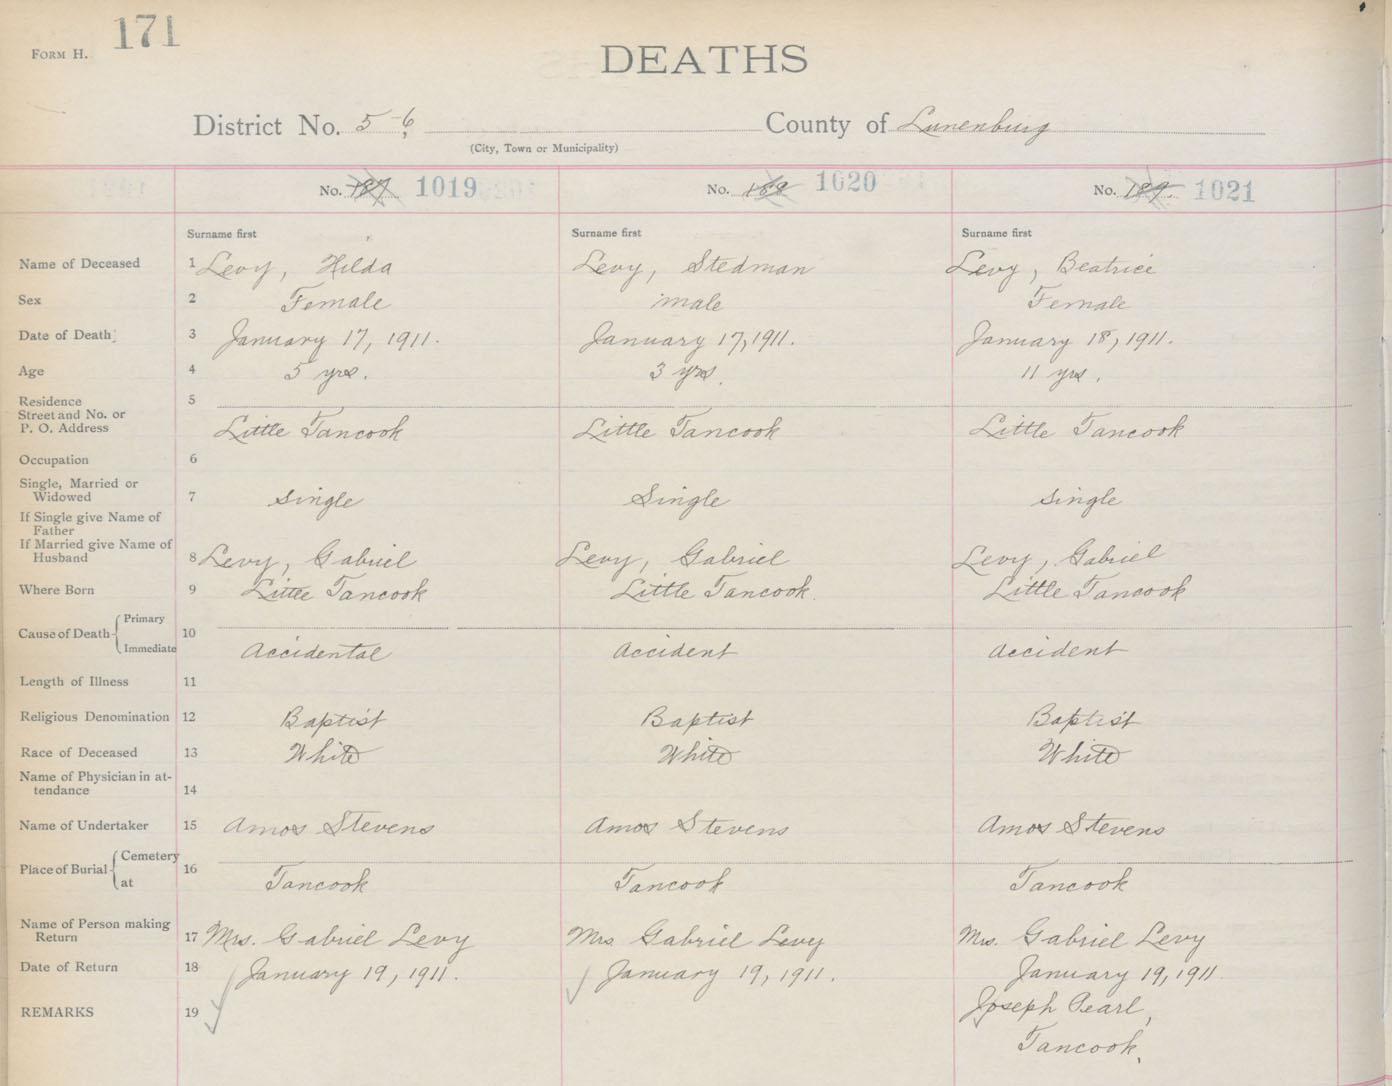 171
FORM H.
DEATHS
District No. 5-6 County of Lunenburg
(City, Town or Municipality)
No. 187 1019 No. 188 1020 No. 189. 1021
Surname first Surname first Surname first
Name of Deceased 1 Levy, Hilda Levy, Stedman Levy, Beatrice
Sex 2 Female male Female
Date of Death 3 January 17, 1911. January 17, 1911. January 18, 1911.
Age 4 5 yrs. 3 yrs. 11 yrs.
Residence 5
Street and No. or
P. O. Address Little Tancook Little Tancook Little Tancook
Occupation 6
Single, Married or
Widowed 7 Single Single Single
If Single give Name of
Father
If Married give Name of
Husband 8 Levy, Gabriel Levy, Gabriel Levy, Gabriel
Where Born 9 Little Tancook Little Tancook. Little Tancook
Cause of Death 10 Primary
Immediate Accidental Accident Accident
Length of Illness 11
Religious Denomination 12 Baptist Baptist Baptist
Race of Deceased 13 White White White
Name of Physician in at-
tendance 14
Name of Undertaker 15 Amos Stevens Amos Stevens Amos Stevens
Place of Burial 16 Cemetery
at Tancook Tancook Tancook
Name of Person making
Return 17 Mrs. Gabriel Levy Mrs Gabriel Levy Mrs. Gabriel Levy
Date of Return 18 January 19, 1911. January 19, 1911. January 19, 1911.
REMARKS 19 Joseph Pearl,
Tancook.